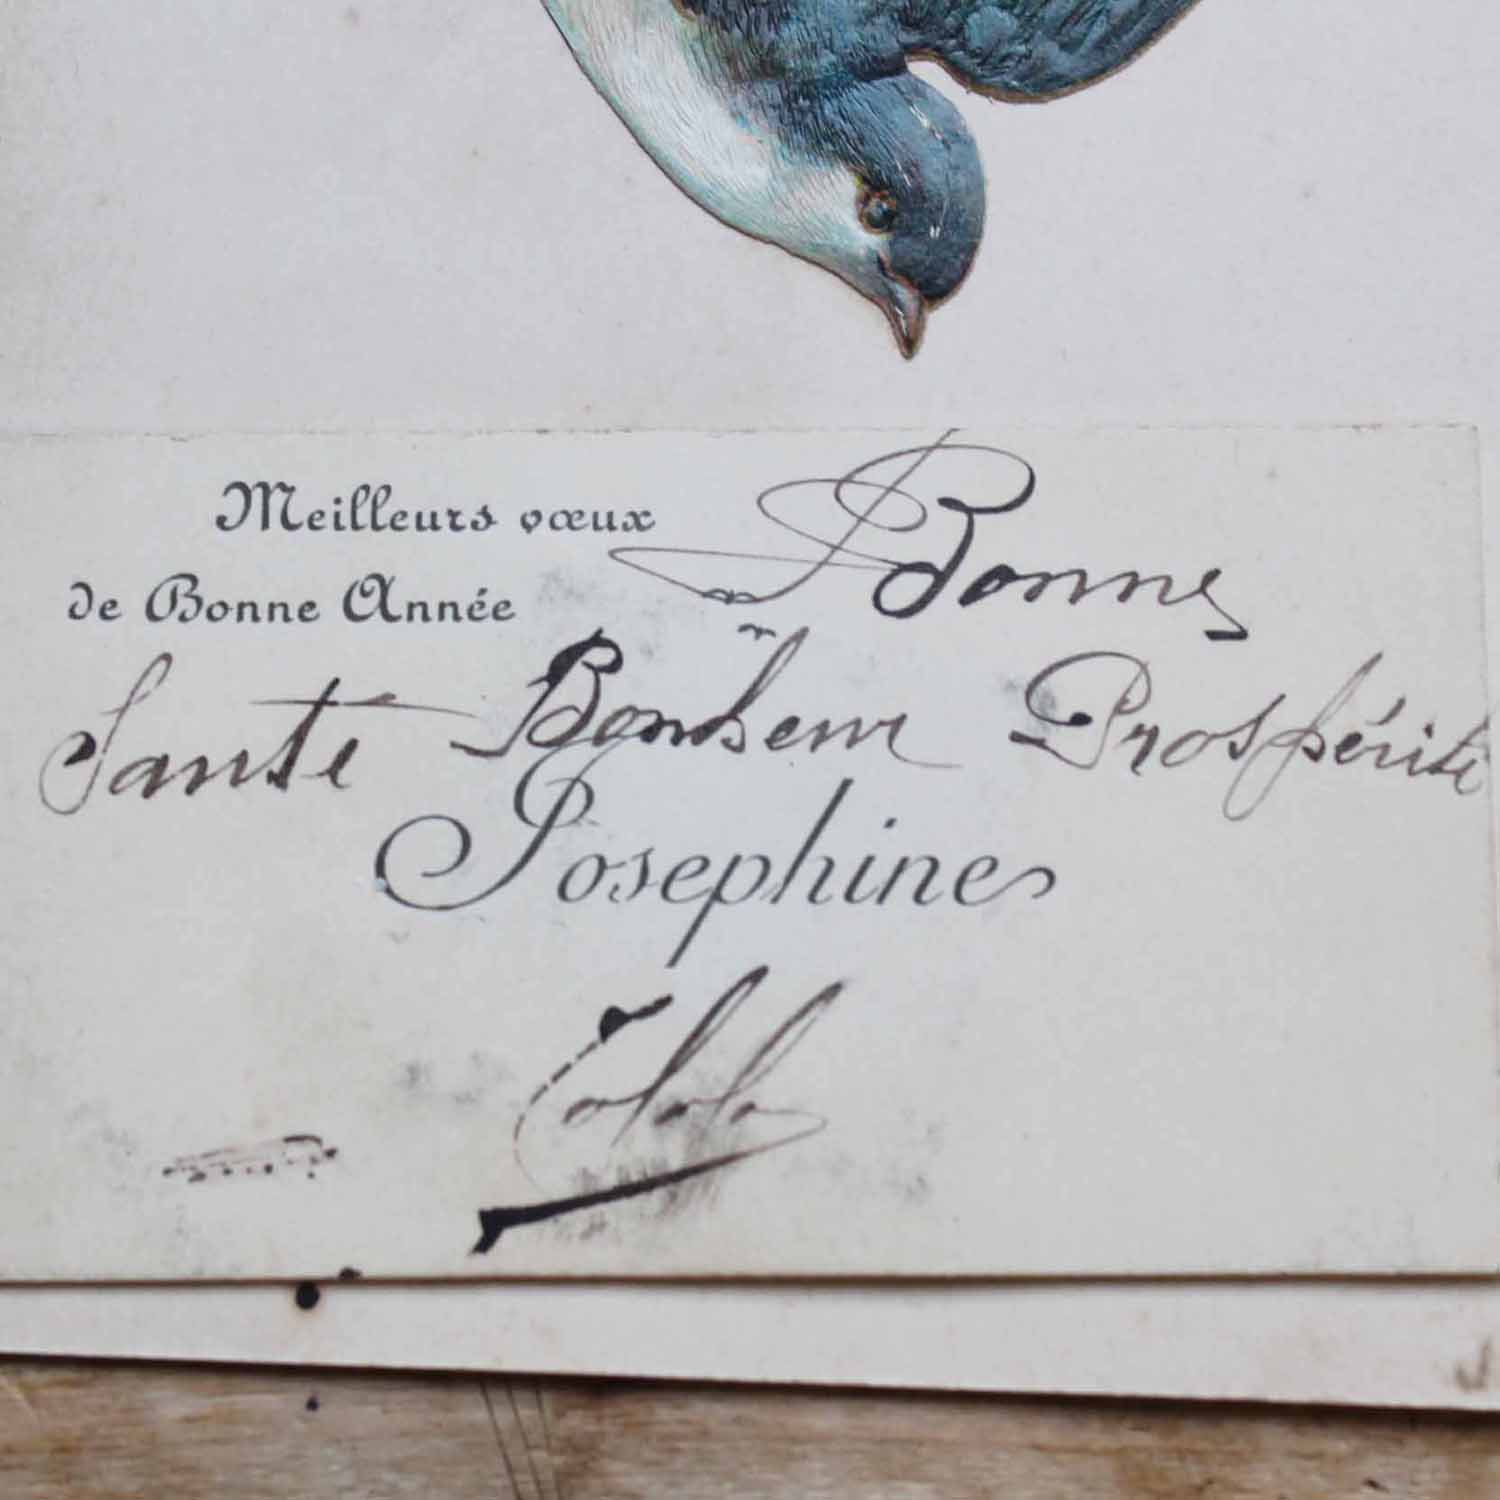 Meilleurs vœux
de Bonne Année
Bonne
Santé Bonheur Prospérité
Josephine